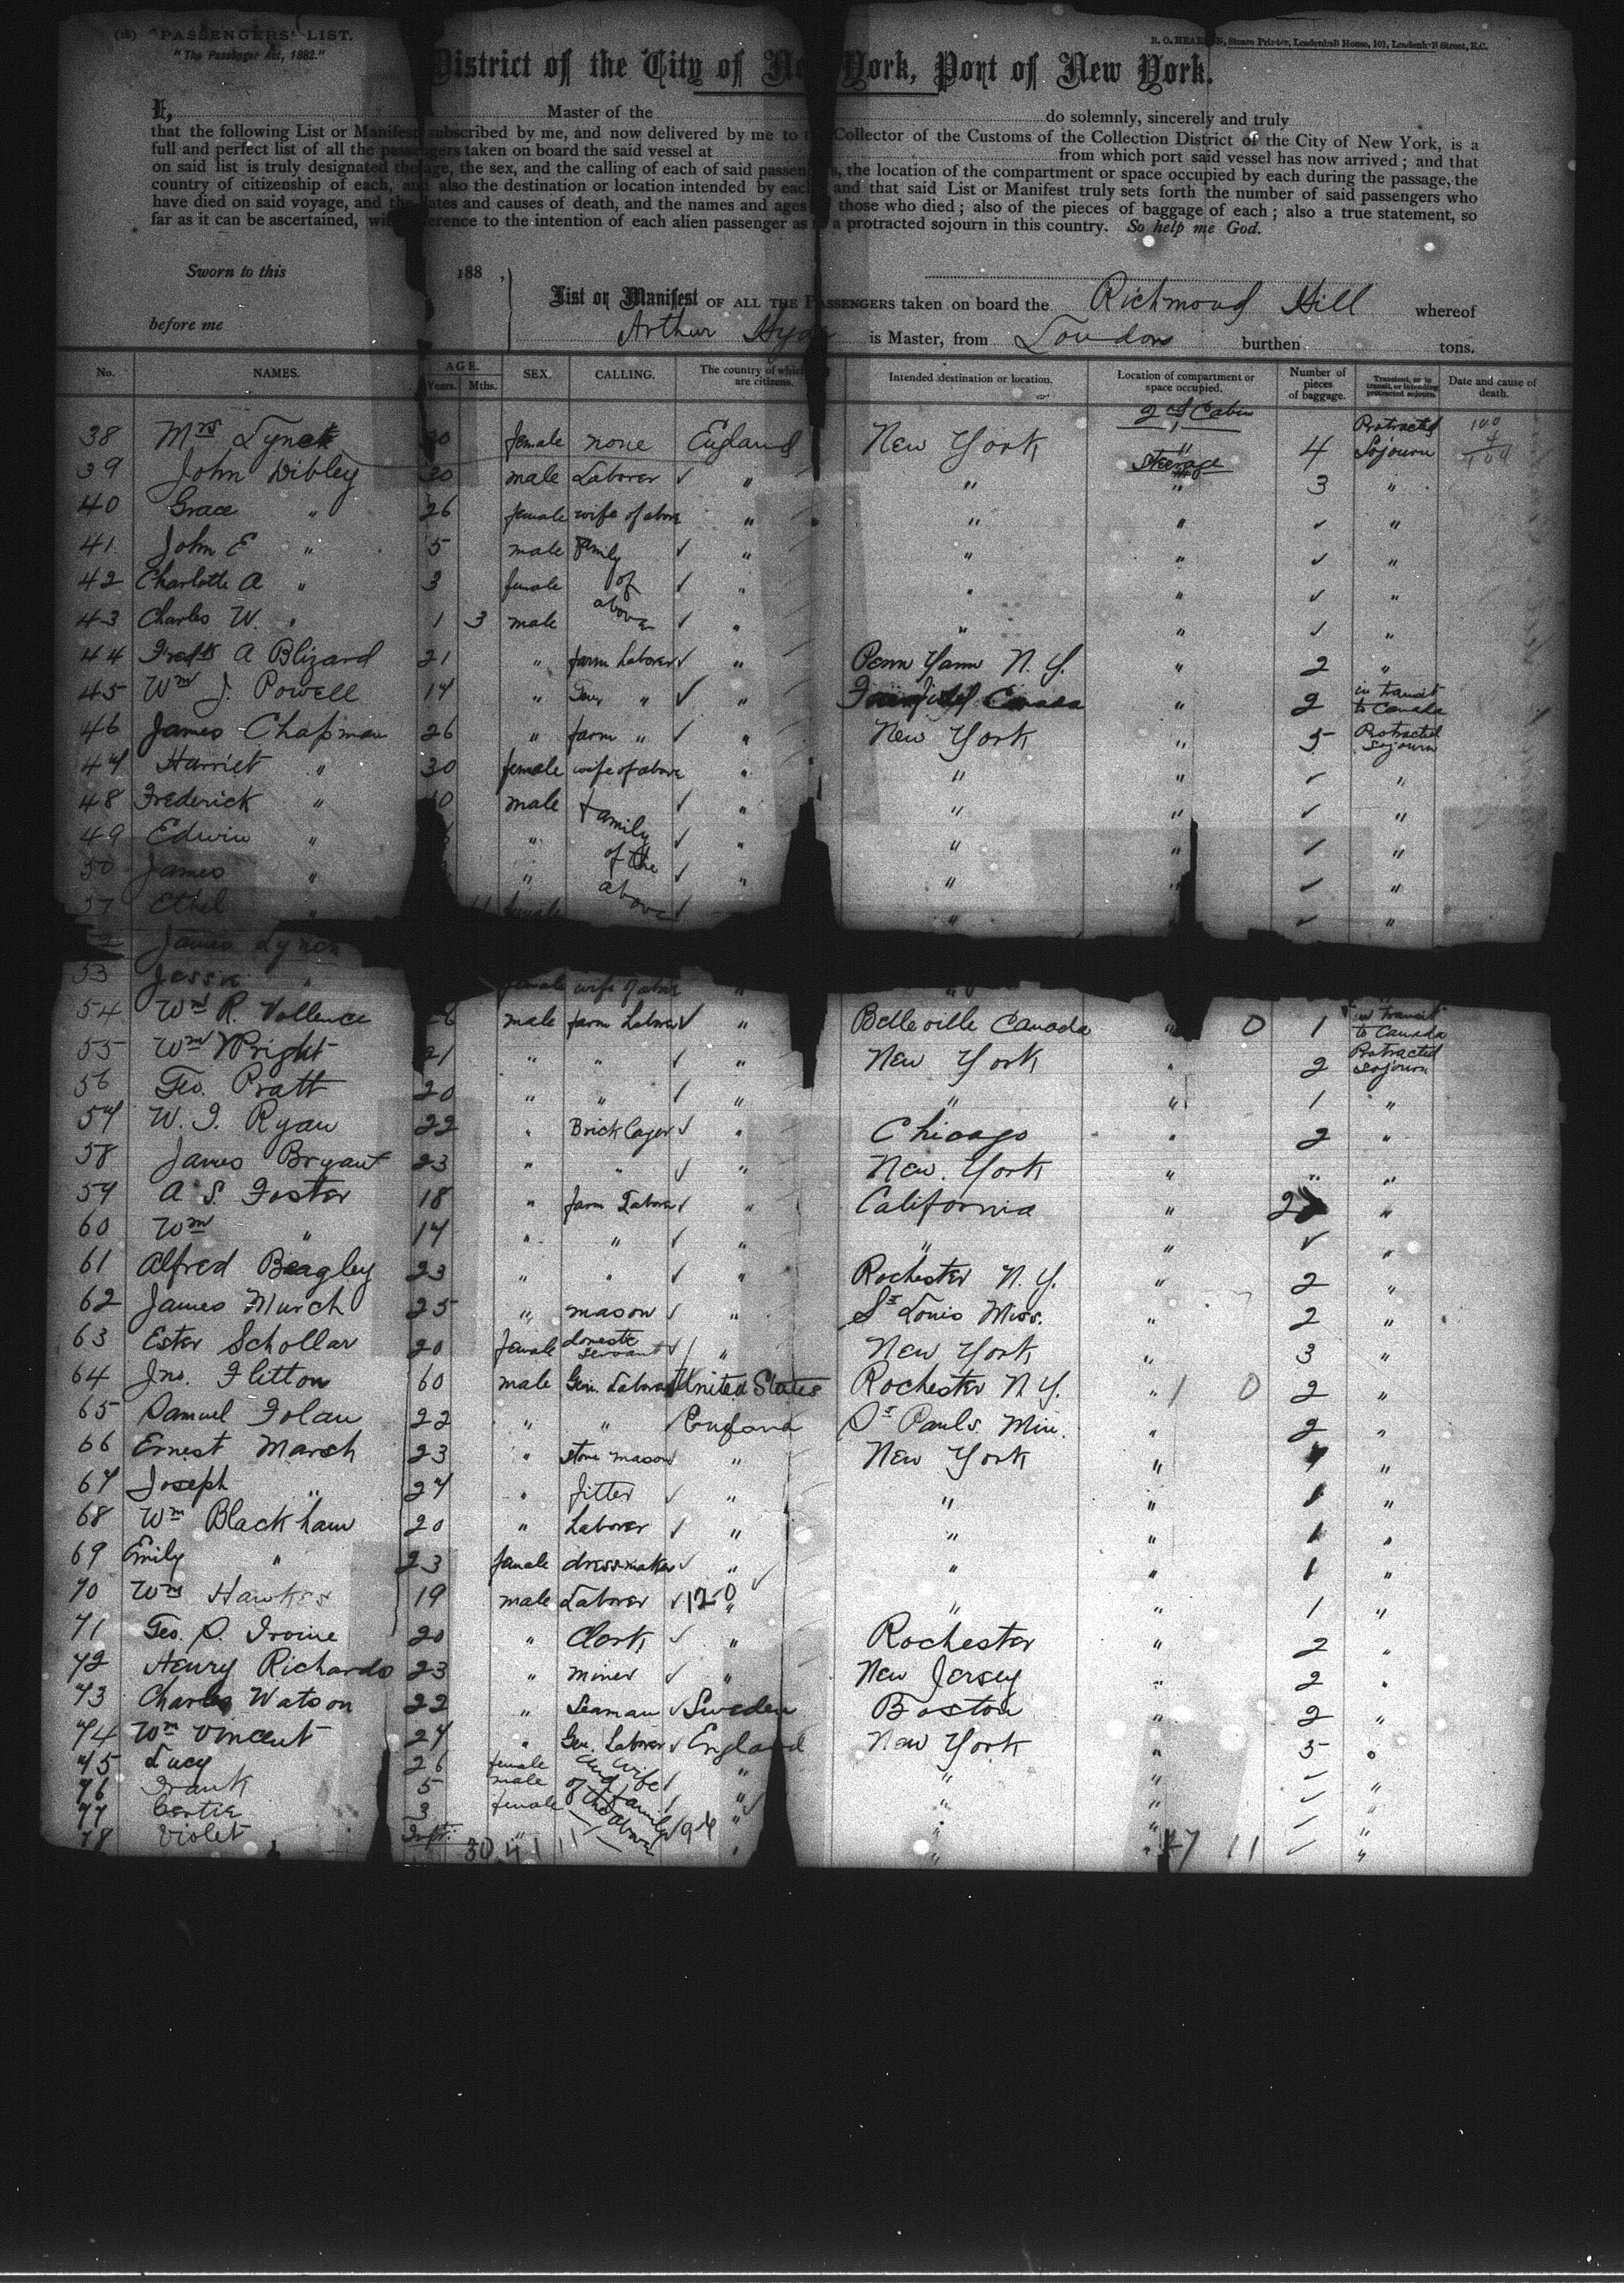 (28) "PASSENGERS' LIST.
"The Passenger Act, 1882."
R. O. Steam Printer, Leadenhall House, 101, Leadenhall Street, E.C.
District of the City of New York, Port of New York.
I, Master of the do solemnly, sincerely and truly
that the following List or Manifest subscribed by me, and now delivered by me to the Collector of the Customs of the Collection District of the City of New York, is a
full and perfect list of all the passengers taken on board the said vessel at from which port said vessel has now arrived; and that
on said list is truly designated the age, the sex, and the calling of each of said passengers, the location of the compartment or space occupied by each during the passage, the
country of citizenship of each, and also the destination or location intended by each and that said List or Manifest truly sets forth the number of said passengers who
have died on said voyage, and the dates and causes of death, and the names and ages of those who died; also of the pieces of baggage of each; also a true statement, so
far as it can be ascertained, with reference to the intention of each alien passenger as to a protracted sojourn in this country. So help me God.
Sworn to this 188
List or Manifest OF ALL THE PASSENGERS taken on board the Richmond Hill whereof
before me Arthur is Master, from London burthen tons.
No. NAMES. AGE. Years. Mths. SEX. CALLING. The country of which are citizens. Intended destination or location. Location of compartment or space occupied. Number of pieces of baggage. Transient, or in transit, or intending protracted sojourn. Date and cause of death.
38 Mrs Lynch 30 female none England New York 2nd Cabin " 4 Protracted Sojourn
39 John Dibley 30 male Laborer ✓ " " Steerage " 3 "
40 Grace " 26 female wife of above " " " ✓ "
41 John E " 5 male family ✓ " " " ✓ "
42 Charlotte A " 3 female of ✓ " " " ✓ "
43 Charles W. " 1 3 male above ✓ " " " ✓ "
44 Fredk A Blizard 21 " farm Laborer ✓ " Penn Yann N.Y. " 2 "
45 Wm J. Powell 17 " " ✓ " Canada " 2 in transit to Canada
46 James Chapman 26 " farm " ✓ " New York " 5 Protracted Sojourn
47 Harriet " 30 female wife of above " " " ✓ "
48 Frederick " 10 male family ✓ " " " ✓ "
49 Edwin " " ✓ " " " ✓ "
50 James " " of the ✓ " " " ✓ "
51 Ethel " female above ✓ " ✓ "
James Lynch
53 Jessie " female wife of above " "
54 Wm R. Vollence 26 male farm Laborer ✓ " Belleville Canada " 0 1 in transit to Canada
55 Wm Wright 21 " " ✓ " New York " 2 Protracted Sojourn
56 Geo. Pratt 20 " " ✓ " " " 1 "
57 W. J. Ryan 22 " Brick Layer ✓ " Chicago " 2 "
58 James Bryant 23 " " ✓ " New York " " "
59 A. S. Foster 18 " farm Laborer ✓ " California " 2 "
60 Wm " 17 " " ✓ " " " ✓ "
61 Alfred Beagley 23 " " ✓ " Rochester N.Y. " 2 "
62 James Murch 25 " mason ✓ " St Louis Miss. " 2 "
63 Ester Schollar 20 female domestic servant ✓ " New York " 3 "
64 Jno. Flitton 60 male Gen. Laborer United States Rochester N.Y. " 1 0 2 "
65 Samuel Folan 22 " " ✓ England St Pauls. Min. " 2 "
66 Ernest March 23 " stone mason ✓ " New York " 1 "
67 Joseph " 27 " fitter ✓ " " " 1 "
68 Wm Blackham 20 " Laborer ✓ " " " 1 "
69 Emily " 23 female dressmaker ✓ " " " 1 "
70 Wm Hawkes 19 male Laborer ✓ 120 " " " 1 "
71 Geo. S. Irvine 20 " Clerk ✓ " Rochester " 2 "
72 Henry Richards 23 " miner ✓ " New Jersey " 2 "
73 Charles Watson 22 " Seaman ✓ Sweden Boston " 2 "
74 Wm Vincent 27 " Gen. Laborer ✓ England New York " 5 "
75 Lucy 26 female wife ✓ " " " ✓
76 Frank 5 male and family ✓ " " " ✓ "
77 Gertie 3 female of the " " " ✓ "
78 Violet Inft: " above " " " 47 11 ✓ "